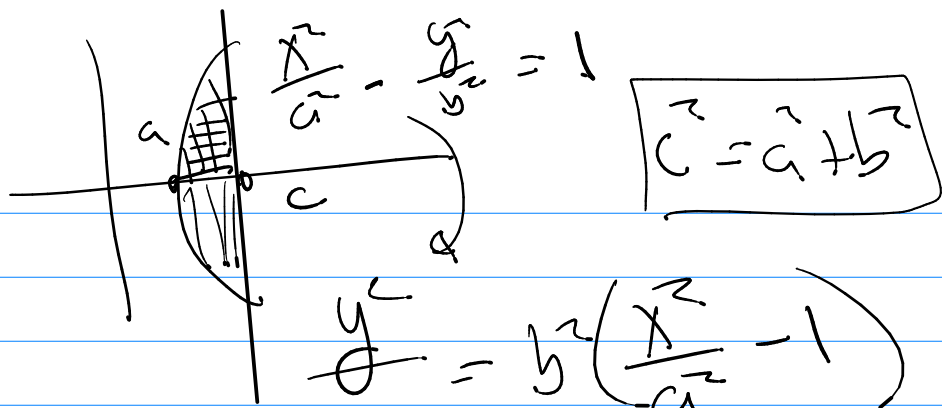 x²/a² - y²/b² = 1
c² = a² + b²
a
c
y² = b²(x²/a² - 1)